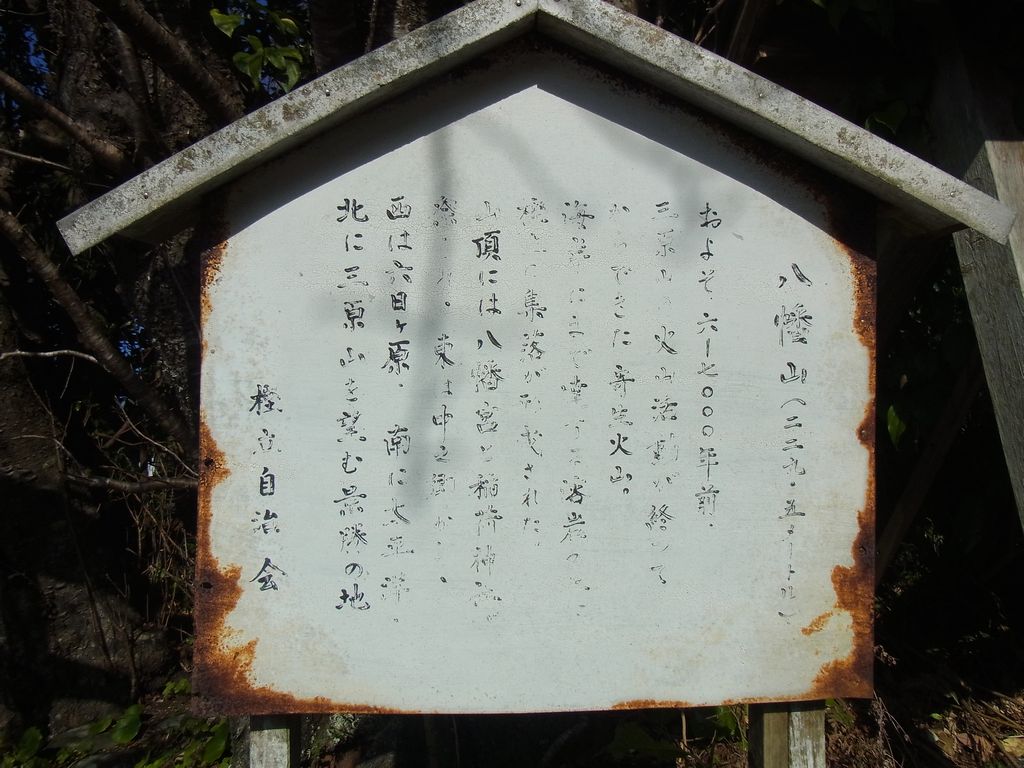 八幡山(二二九・五メートル)
およそ、六-七〇〇〇年前、
三原山の火山活動が終って
からできた寄生火山。
海岸にまで達する溶岩の上に
集落が形成された。
山頂には八幡宮と稲荷神社が
東は中之郷から、
西は六日ヶ原、南に太平洋、
北に三原山を望む景勝の地
樫立自治会